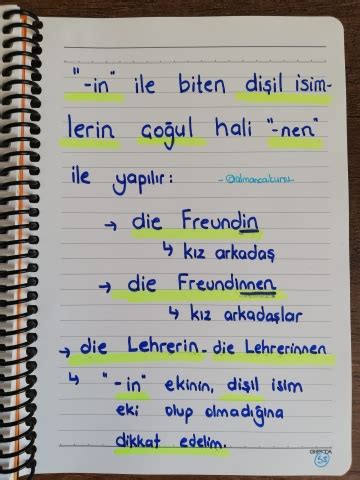 "-in" ile biten dişil isim-
lerin çoğul hali "-nen"
ile yapılır: -@almancakursu
→ die Freundin
↳ kız arkadaş
→ die Freundinnen
↳ kız arkadaşlar
→ die Lehrerin - die Lehrerinnen
↳ "-in" ekinin, dişil isim
eki olup olmadığına
dikkat edelim.